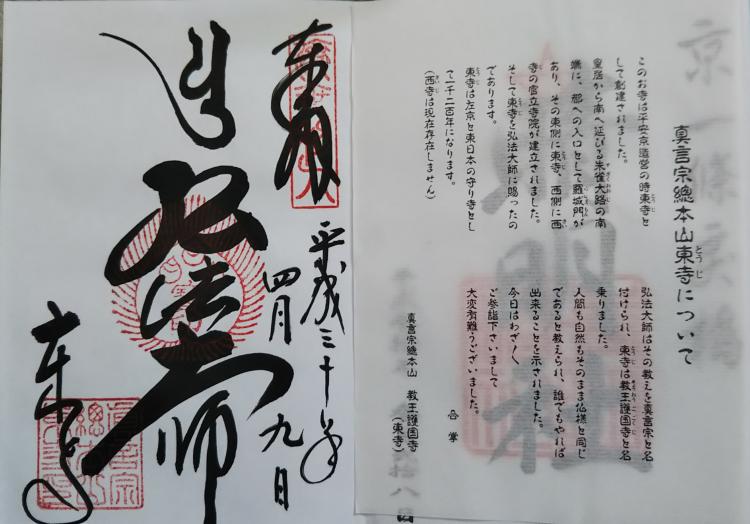 真言宗總本山東寺について
このお寺は平安京造営の時東寺と
して創建されました。
皇居から南へ延びる朱雀大路の南
端に、都への入口として羅城門が
あり、その東側に東寺、西側に西
寺の官立寺院が建立されました。
そして東寺を弘法大師に賜ったの
であります。
東寺は左京と東日本の守り寺とし
て一千二百年になります。
(西寺は現在存在しません)
弘法大師はその教えを真言宗と名
付けられ、東寺は教王護国寺と名
乗りました。
人間も自然もそのまま仏様と同じ
であると教えられ、誰でもやれば
出来ることを示されました。
今日はわざ〱
ご参詣下さいまして
大変有難うございました。
合掌
真言宗總本山 教王護国寺
(東寺)
京一條戻橋
奉拝
平成三十年
四月九日
弘法大師
東寺